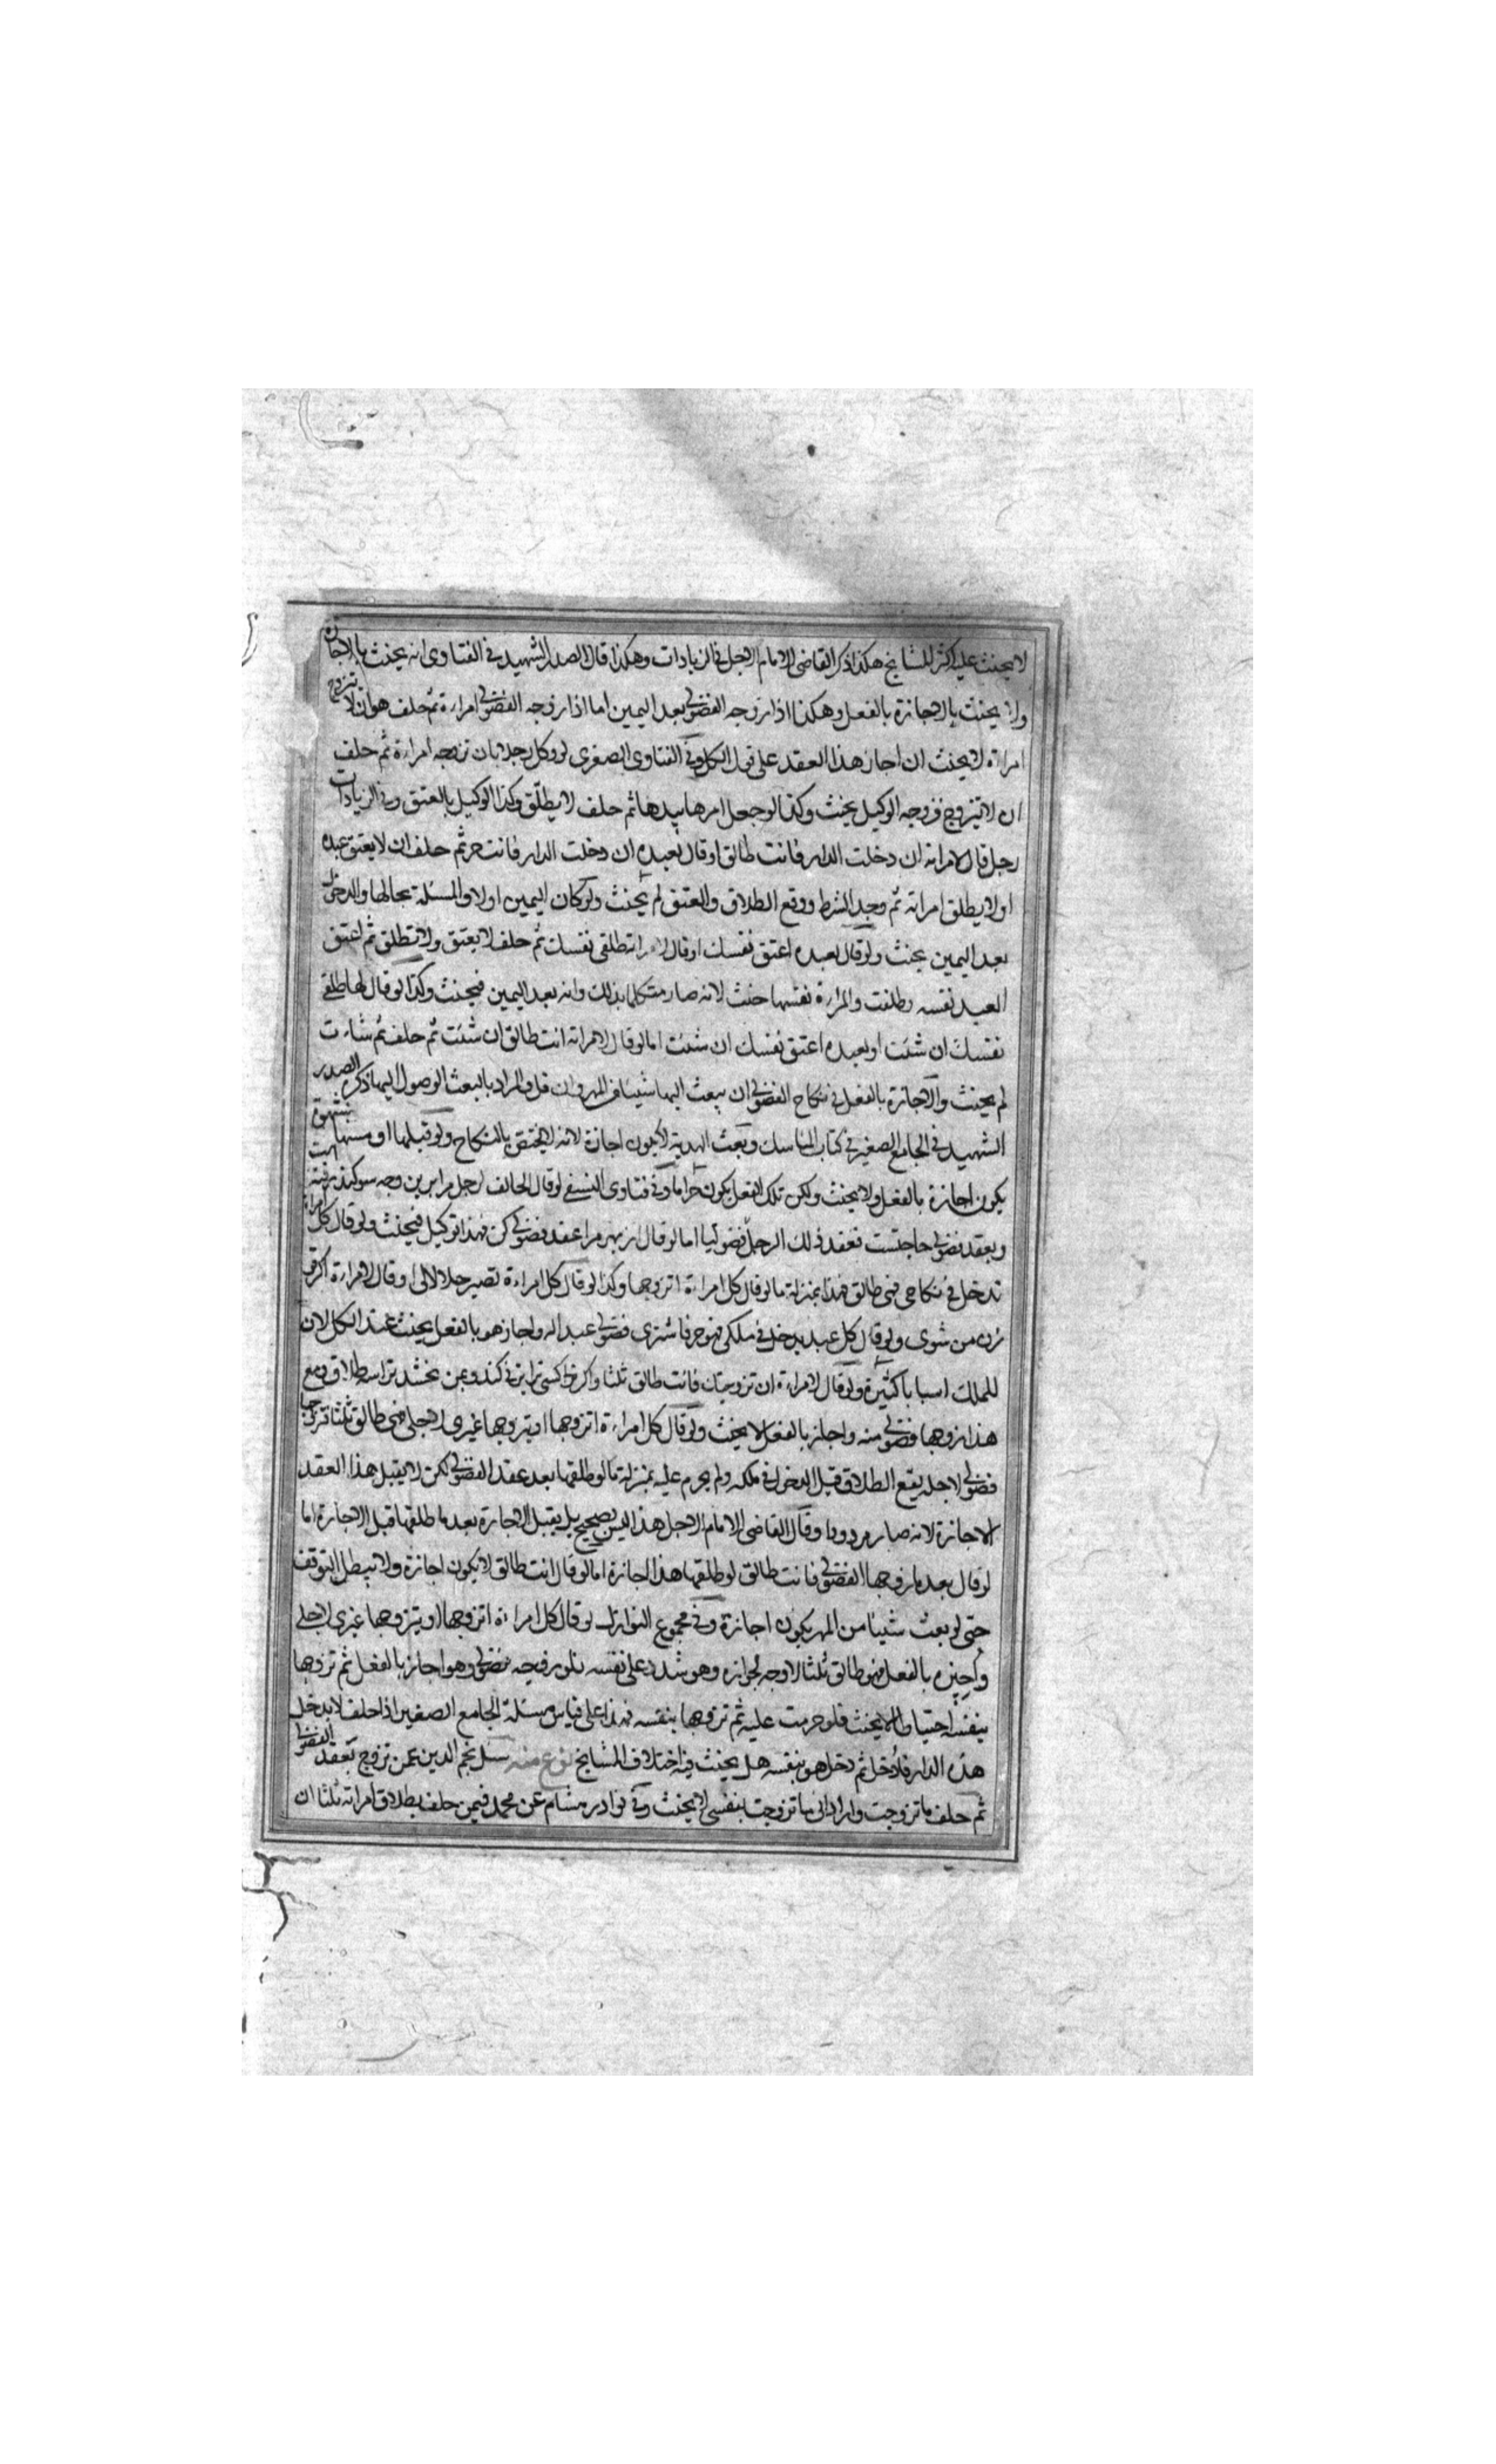 لا يحنث عليه اكثر المشايخ هكذا ذكر القاضى الامام الاجل فى الزيادات وهكذا قال الصدر الشهيد فى الفتاوى انه يحنث بالاجازة
وانه يحنث بالاجازة بالفعل وهكذا اذا زوجه الفضولى بعد اليمين اما اذا زوجه الفضولى امراءة ثم حلف هو ان لا يتزوج
امراة لا يحنث ان اجاز هذا العقد على قول الكل وفى الفتاوى الصغرى لو وكل رجلا بان تزوجه امراءة ثم حلف
ان لا يتزوج فزوجه الوكيل يحنث وكذا لو جعل امرها بيدها ثم حلف لا يطلق وكذا الوكيل بالعتق وفى الزيادات
رجل قال لامراته ان دخلت الدار فانت طالق او قال لعبده ان دخلت الدار فانت حر ثم حلف ان لا يعتق عبده
او لا يطلق امراته ثم وجد الشرط ووقع الطلاق والعتق لم يحنث ولو كان اليمين اولا والمسئلة بحالها والدخول
بعد اليمين يحنث ولو قال لعبده اعتق نفسك او قال لامراته طلقى نفسك ثم حلف لا يعتق ولا تطلق ثم اعتق
العبد نفسه وطلقت والمراءة نفسها حنث لانه صار متكلما بذلك وانه بعد اليمين فيحنث وكذا لو قال لها طلقى
نفسك ان شئت او لعبده اعتق نفسك ان شئت اما لو قال لامراته انت طالق ان شئت ثم حلف ثم شاءت
لم يحنث والاجازة بالفعل فى نكاح الفضولى ان يبعث اليها شيئا من المهر وان قل والمراد بالبعث الوصول اليها ذكره الصدر
الشهيد فى الجامع الصغير فى كتاب المناسك وبعث الهدية لا يكون اجازة لانه لا يختص بالنكاح ولو قبلها او مسها بشهوة
يكون اجازة بالفعل ولا يحنث ولكن تلك الفعل يكون حراما وفى فتاوى النسفى لو قال الحالف لرجل مرا برين وجه سوكند رفته است
وبعقد فضولى حاجتست فعقد ذلك الرجل فضوليا اما لو قال از بهر مرا عقد فضولى كن فهذا توكيل فيحنث ولو قال كل امراة
تدخل فى نكاحى فهى طالق فهذا بمنزلة ما لو قال كل امراءة اتزوجها وكذا لو قال كل امراءة تصير حلالا لى او قال لامراءة اكر تو
زن من شوى ولو قال كل عبد يدخل فى ملكى فهو حر فاشترى فضولى عبدا له واجاز هو بالفعل يحنث عند الكل لان
للملك اسبابا كثيرة ولو قال لامراءة ان تزوجتك فانت طالق ثلثا واكر كسى ترا بزنى كند وبمن بخشد تراسه طلاق ومع
هذا زوجها فضولى منه واجاز بالفعل لا يحنث ولو قال كل امراءة اتزوجها او يتزوجها غيرى لاجلى فهى طالق ثلثا تزوجها
فضولى لاجله يقع الطلاق قبل الدخول فى ملكه ولم يحرم عليه بمنزلة ما لو طلقها بعد عقد الفضولى لكن لا يقبل هذا العقد
الاجازة لانه صار مردودا وقال القاضى الامام الاجل هذا ليس بصحيح بل يقبل الاجازة بعد ما طلقها قبل الاجازة اما
لو قال بعد ما زوجها الفضولى فانت طالق لو طلقها هذا اجازة اما لو قال انت طالق لا يكون اجازة ولا يبطل التوقف
حتى لو بعث شيئا من المهر يكون اجازة وفى مجموع النوازل لو قال كل امراءة اتزوجها او يتزوجها غيرى لاجلى
واجيزه بالفعل فهو طالق ثلثا لا وجه لجوازه وهو شدد على نفسه فلو زوجه فضولى وهو اجاز بالفعل ثم تزوجها
بنفسه احتياطا لا يحنث فلو حرمت عليه ثم تزوجها بنفسه فهذا على قياس مسئلة الجامع الصغير اذا حلف لا يدخل
هذه الدار فادخل ثم دخل هو بنفسه هل يحنث فيه اختلاف المشايخ نوع منه سئل نجم الدين عمن تزوج بعقد الفضولى
ثم حلف ما تزوجت واراد انى ما تزوجت بنفسى لا يحنث وفى نوادر هشام عن محمد فيمن حلف بطلاق امراته ثلثا ان